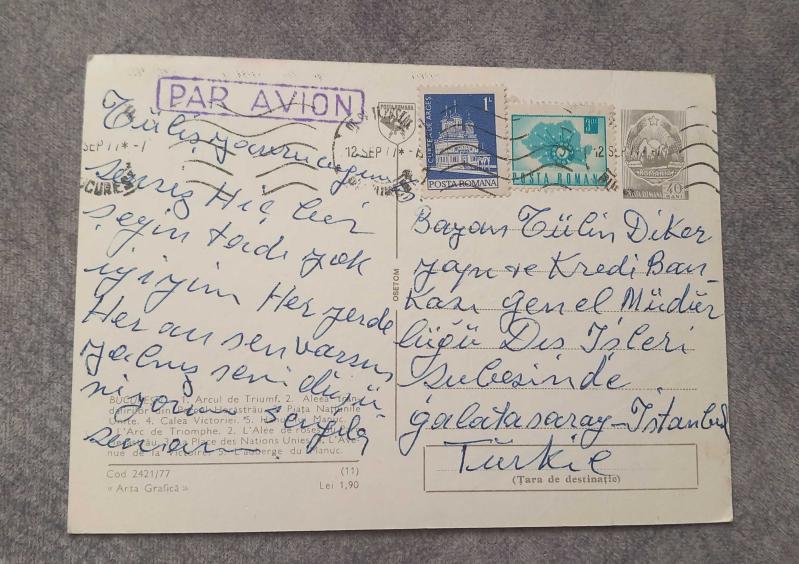 PAR AVION
Tülin yavrucuğum
sensiz Hiç bir
şeyin tadı yok
iyiyim Her yerde
Her an sen varsın
yalnız seni düşü
nüyorum Sevgiler
POSTA ROMANA
12 SEP 77
CURTEA DE ARGES
1L
POSTA ROMANA
POSTA ROMANA
ROMANIA
POSTA ROMANA 40 BANI
Bayan Tülin Diker
yapı ve Kredi Ban
Kası genel Müdür
lüğü Dış İşleri
şubesinde
galatasaray-İstanbul
Türkie
(Țara de destinație)
OSETOM
BUCUREȘTI 1. Arcul de Triumf. 2. Aleea
Herăstrău 3. Piața Națiunile
Unite. 4. Calea Victoriei. 5. Hanul lui Manuc.
L'Arc de Triomphe. 2. L'Allée de roses
Herăstrău. 3. La Place des Nations Unies. 4. L'Ave-
nue de la Victoire. 5. L'auberge du Manuc.
Cod 2421/77
(11)
« Arta Grafică »
Lei 1,90